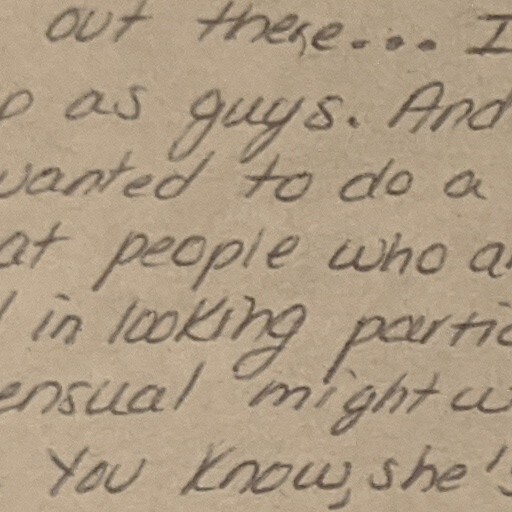 out there... I
p as guys. And
wanted to do a
at people who a
in looking partic
ensual might w
You know, she's